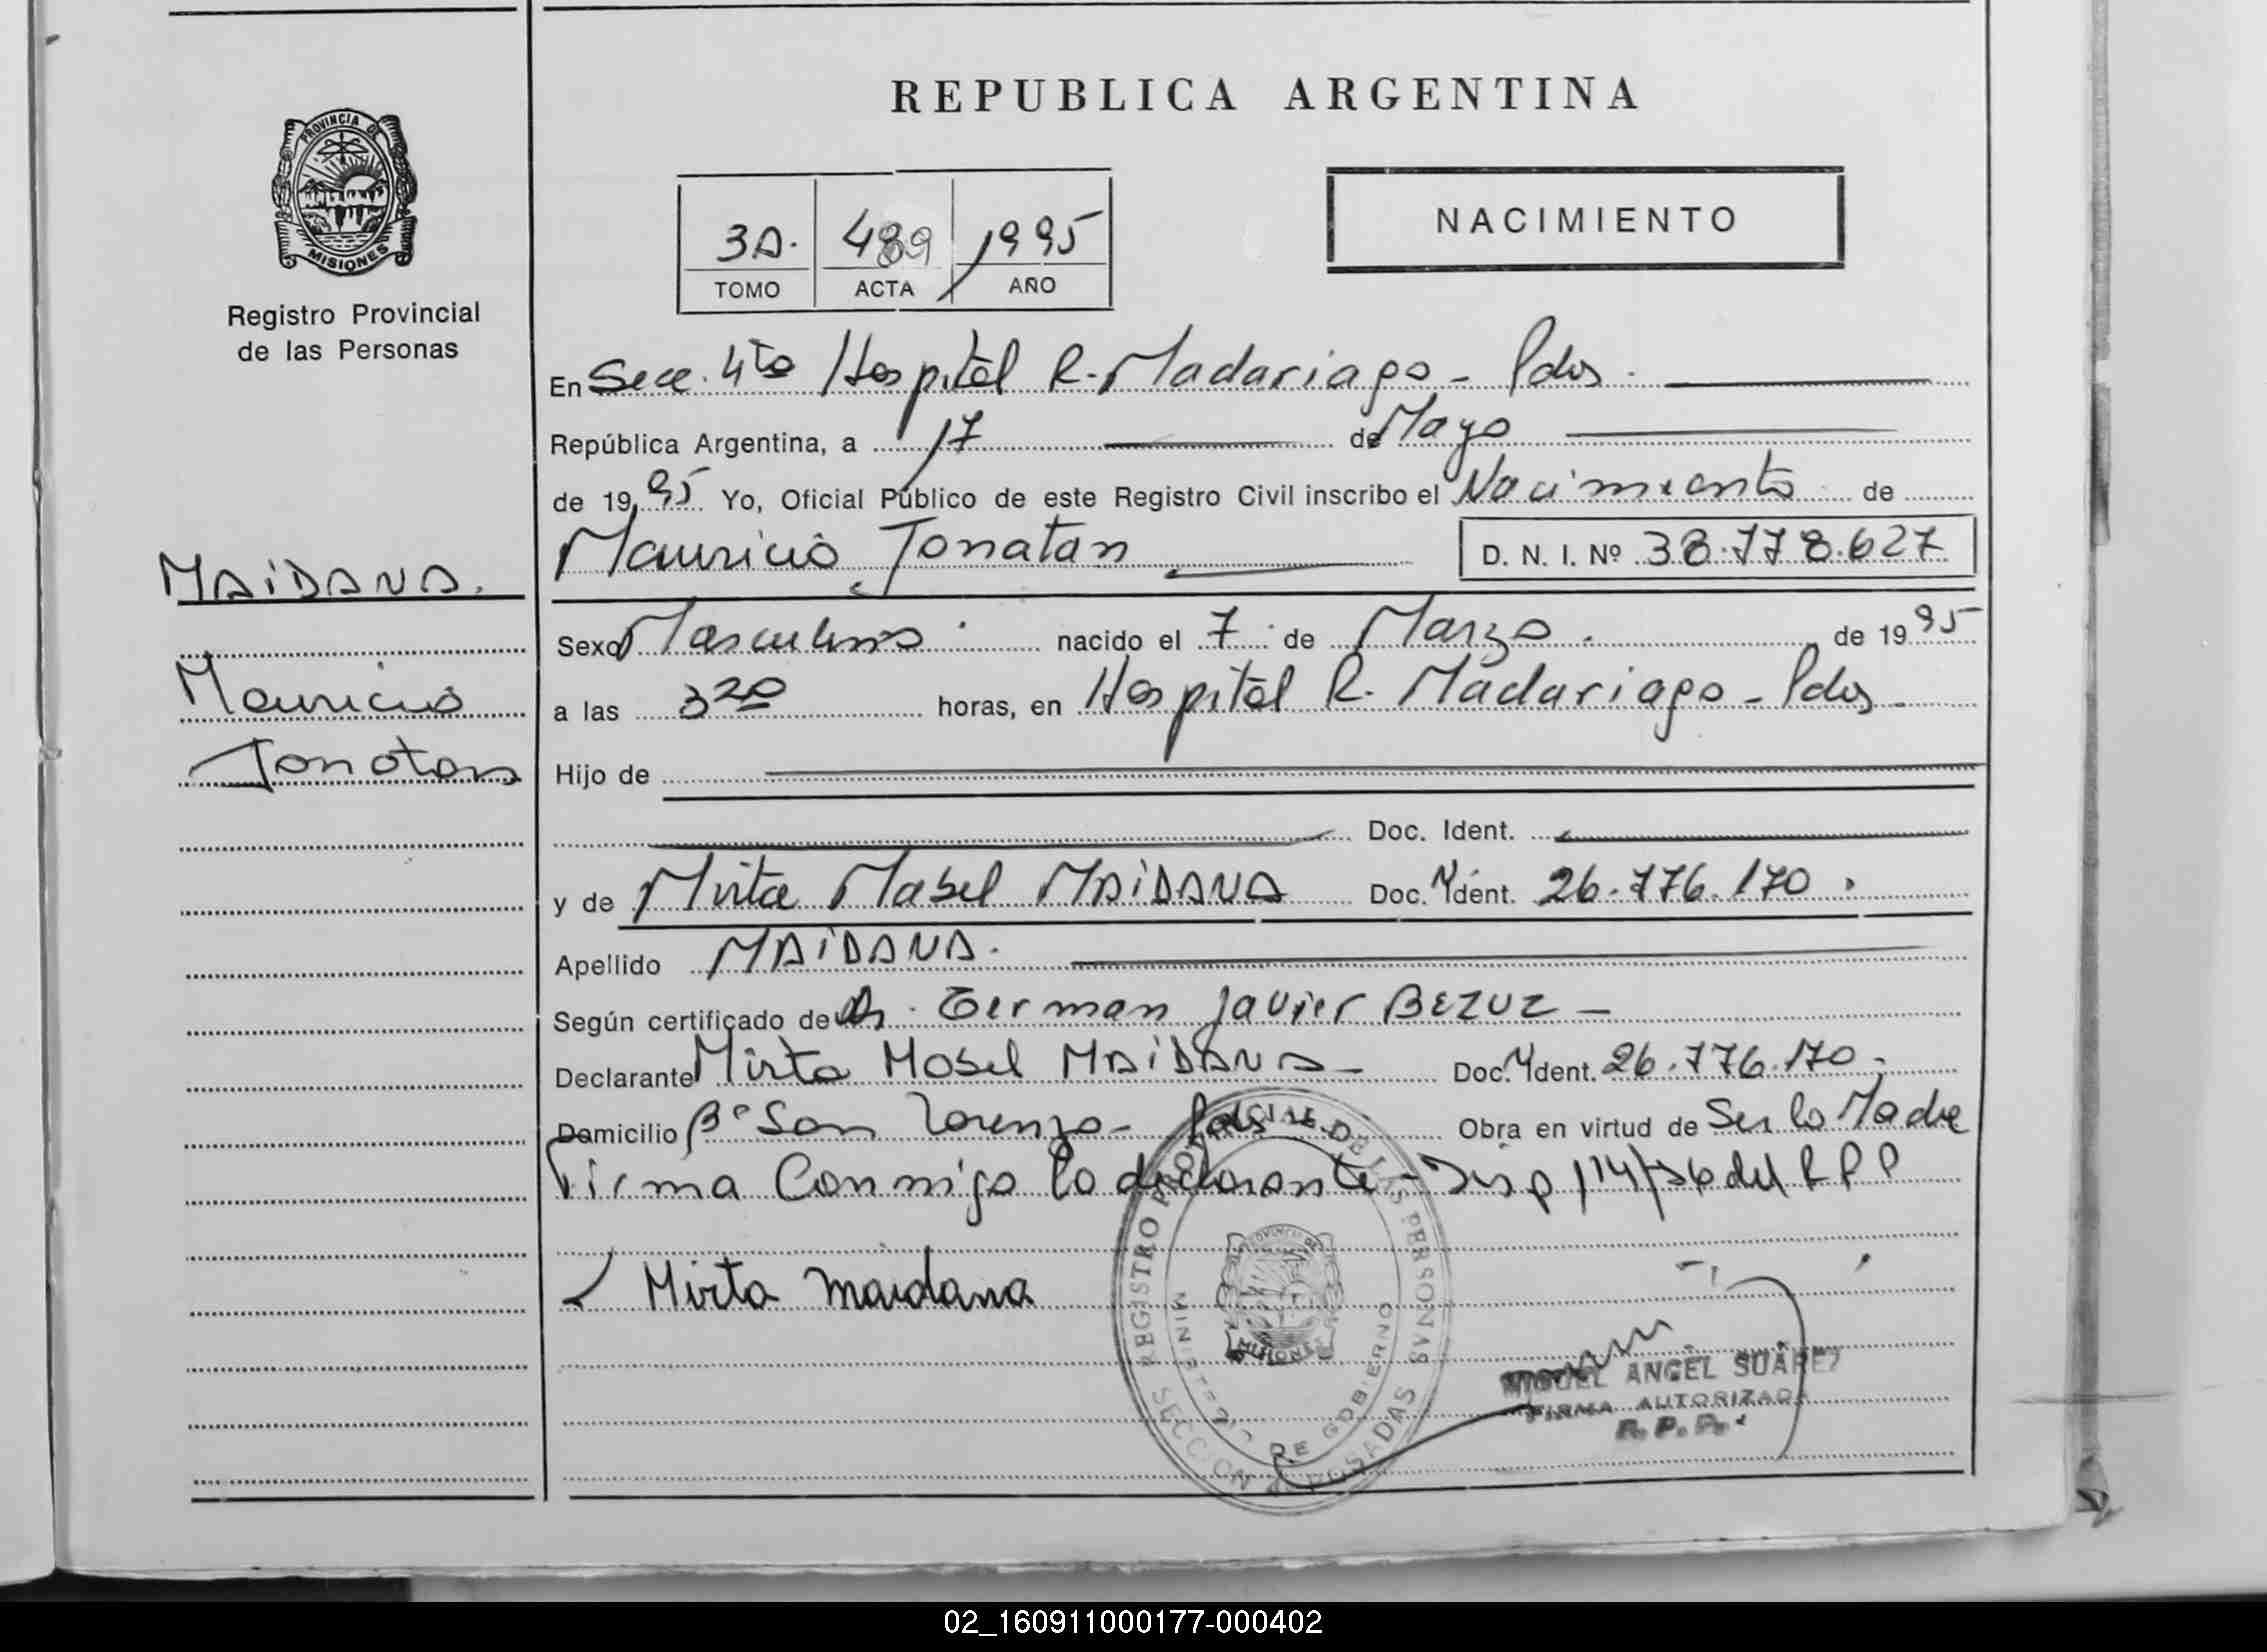 REPUBLICA ARGENTINA
PROVINCIA DE
MISIONES
Registro Provincial
de las Personas
3A. 489 1995
TOMO ACTA AÑO
NACIMIENTO
En Secc. 4ta Hospital R. Madariaga - Pdas.
República Argentina, a 17 de Mayo
de 1995 Yo, Oficial Público de este Registro Civil inscribo el Nacimiento de
Mauricio Jonatan D. N. I. Nº 38.778.627
MAIDANA.
Mauricio
Jonatan
Sexo Masculino. nacido el 7 de Marzo. de 1995
a las 3 20 horas, en Hospital R. Madariaga - Pdas.
Hijo de
Doc. Ident.
y de Mirta Mabel MAIDANA Doc. Ident. 26.776.170.
Apellido MAIDANA.
Según certificado de Dr. German Javier BEZUZ -
Declarante Mirta Mabel MAIDANA - Doc. Ident. 26.776.170.
Domicilio Bº San Lorenzo - Pdas Obra en virtud de Ser la Madre
Firma Conmigo la declarante - Disp 114/ del R P P
Mirta maidana
REGISTRO PROVINCIAL DE LAS PERSONAS
MINISTERIO DE GOBIERNO
SECCION POSADAS
PROVINCIA DE
MISIONES
MIGUEL ANGEL SUAREZ
FIRMA AUTORIZADA
R. P. P.
02_160911000177-000402